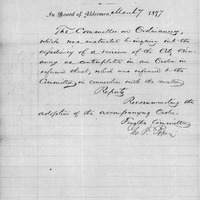 In Board of Aldermen, March 7 1877
The Committee on Ordinances,
which was instructed to inquire into the
expediency of a revision of the City Ordin-
ances as contemplated in an Order in
reference thereto, which was referred to the
Committee in connection with the matter
Report
Recommending the
adoption of the accompanying Order.
For the Committee